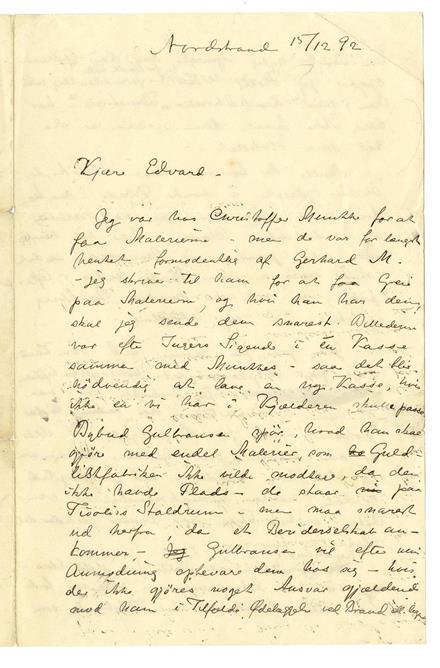 Nordstrand 15/12 92
Kjære Edvard -
Jeg var hos Christoffer Munthe for at
faa Malerierne - men de var for længst
hentet formodentlig af Gerhard M.
- jeg skriver til ham for at faa Greie
paa Malerierne, og hvis han har dem,
skal jeg sende dem snarest. Billederne
var efter Ingers Sigende i én Kasse
sammen med Munthes - saa det blir
nødvendig at lave en ny Kasse, hvis
ikke en vi har i Kjælderen skulde passe
Bybud Gulbransen spør, hvad han skal
gjøre med endel Malerier, som Guld-
listfabriken ikke vilde modtage, da den
ikke havde Plads - de staar paa
Tivolis Staldrum - men maa snarest
ud herfra, da et Berriderselskab an-
kommer - Jeg Gulbransen vil efter min
Anmodning opbevare dem hos sig - hvis
der ikke gjøres noget Ansvar gjældende
mod ham i Tilfælde Ødelæggelse ved Brand